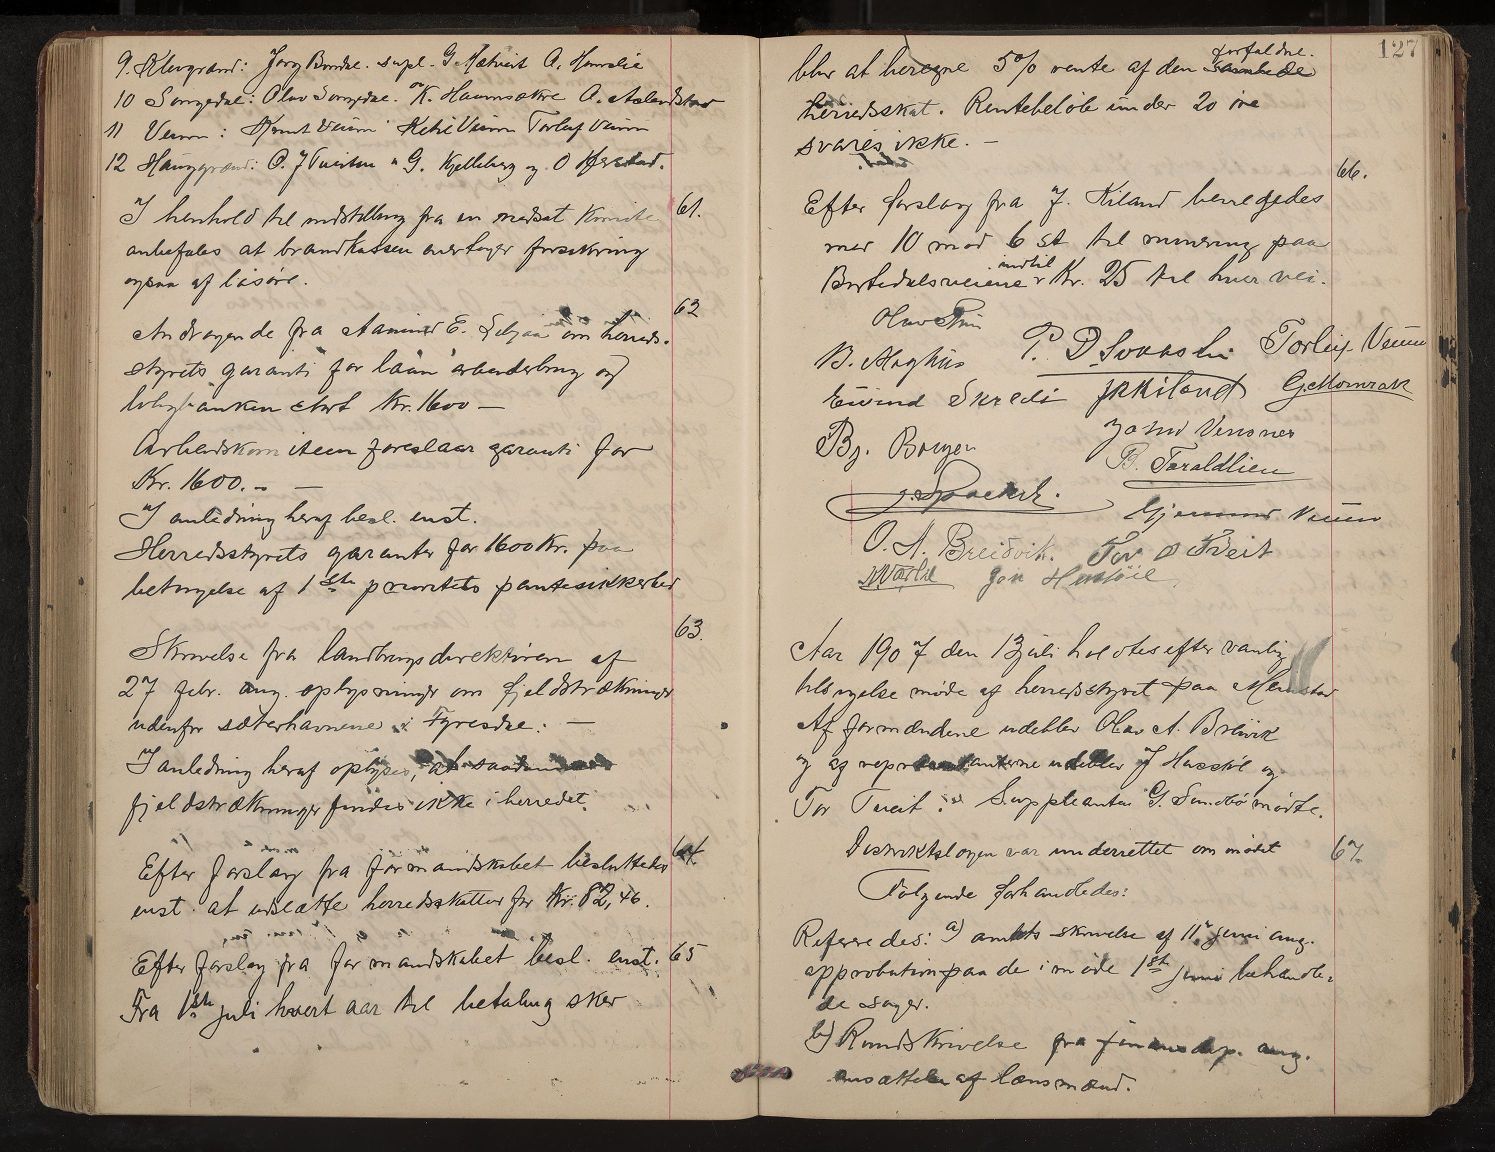 9. Klevgrænd: Jørg Bondal. supl. G. A.
10 Songedal: Olav Songedal. K. O.
11 Veum: Knut Veum Ketil Veum Torleif Veum
12 Hauggrænd: O. J Tveiten G. Kjelleberg og O
I henhold til indstilling fra en nedsat Komite 61.
anbefales at brandkassen overtager forsikring
ogsaa af løsøre.
62
Andragende fra Aanund E. om herreds-
styrets garanti for laan i arbeiderbrug og
boligbanken stort Kr. 1600 —
Arbeidskomiteen foreslaar garanti for
Kr. 1600. — —
I anledning heraf besl. enst.
Herredsstyrets garanti for 1600 Kr. paa
betingelse af 1ste prioritets pantesikkerhed
63.
Skrivelse fra landbrugsdirektøren af
27 febr. ang. oplysninger om fjeldstrækninger
udenfor sæterhavnene i Fyresdal. —
I anledning heraf oplyses, at saadanne
fjeldstrækninger findes ikke i herredet.
64.
Efter forslag fra formandskabet besluttedes
enst. at udsætte herredsskatter for Kr. 82,46.
Efter forslag fra formandskabet besl. enst. 65
Fra 1ste juli hvert aar til betaling sker
127
blir at beregne 5% rente af den forfaldne
herredsskat. Rentebeløb under 20 øre
svares ikke. —
66.
Efter forslag fra J. Kiland bevilgedes
med 10 mod 6 st til minering paa
Birtedalsveiene indtil Kr. 25 til hver vei.
Olav
B. P. D Torleif Veum
Eivind Skredi JKKiland G. Momrak
Bj. Borgen
B. Taraldlien
Gjermund Veum
O. A. Breidvik. Tov O Tveit
Jon
Aar 1907 den 13 juli holdtes efter vanlig
tilsigelse møde af herredsstyret paa Menstad
Af formændene udeblev Olav A. Breivik
og af repræsentanterne udeblev J og
Tor Tveit. Suppleanten G. møtte.
Distriktslægen var underrettet om mødet 67.
Følgende forhandledes:
Refereredes: a) amtets skrivelse af 11te juni ang.
approbation paa de i møde 1ste juni behandle-
de sager.
b) Rundskrivelse fra finansdep. ang.
ansættelse af lænsmænd.